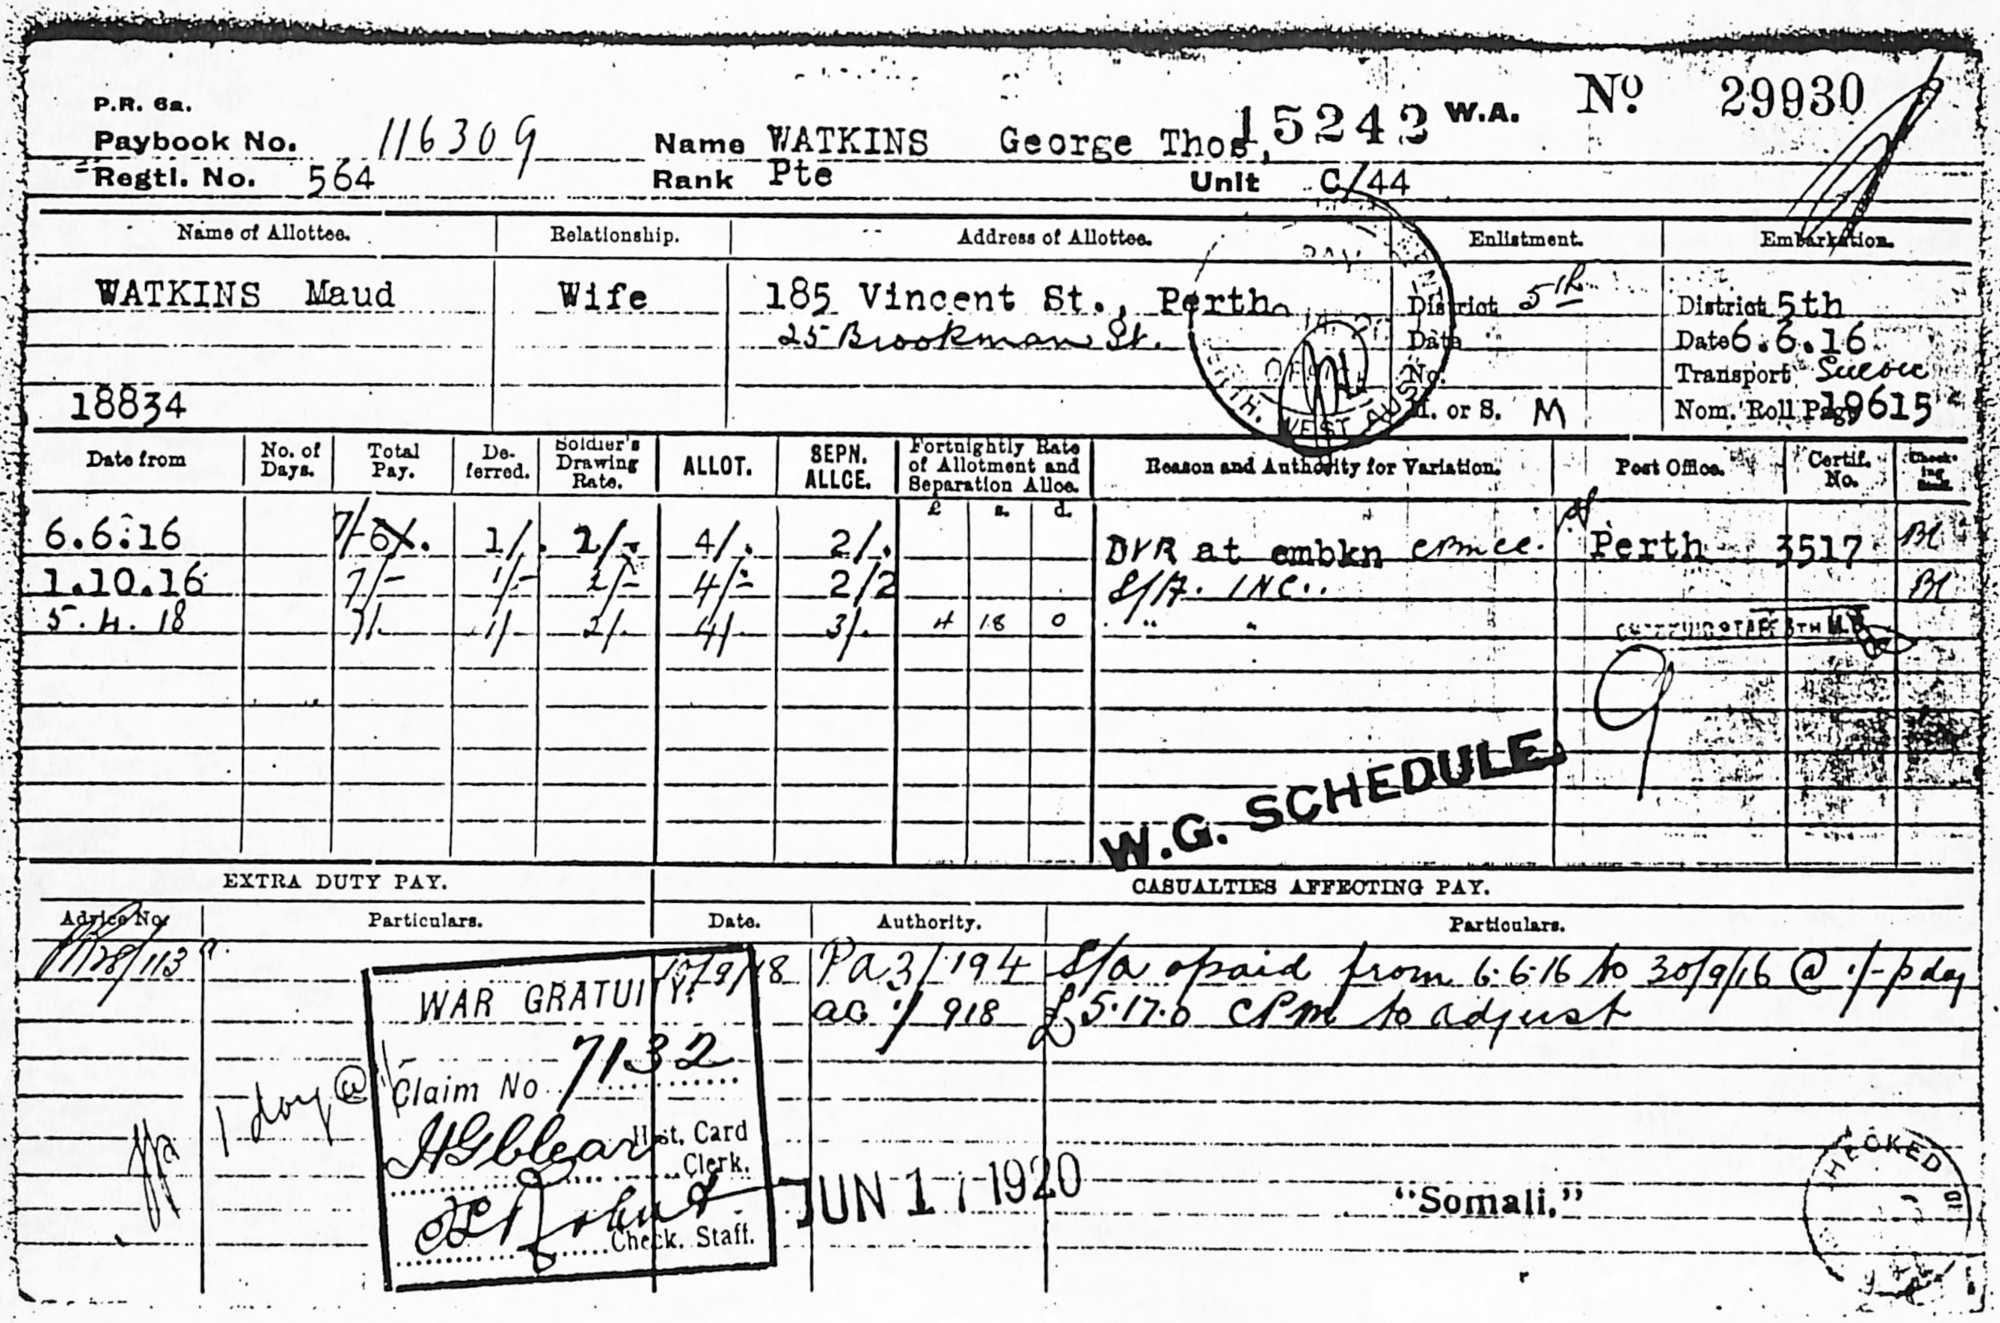 P.R. 6a.
Paybook No. 116309 Name WATKINS George Thos, 15242 W.A. No. 29930
Regtl. No. 564 Rank Pte Unit C/44
Name of Allottee. Relationship. Address of Allottee. Enlistment. Embarkation.
WATKINS Maud Wife 185 Vincent St., Perth. District 5th District 5th
25 Brookman St. Date Date 6.6.16
No. Transport Suevic
18834 M. or S. M Nom. Roll Page 19615
Date from No. of Days. Total Pay. De-ferred. Soldier's Drawing Rate. ALLOT. SEPN. ALLCE. Fortnightly Rate of Allotment and Separation Allce. Reason and Authority for Variation. Post Office. Certif. No. Check-ing
£ s. d.
6.6.16 7/- 6/. 1/. 2/- 4/. 2/. DVR at embkn Perth 3517 BC
1.10.16 7/- 1/- 2/- 4/- 2/2 S/A. INC.. BC
5.4.18 7/. 1/. 2/. 4/. 3/. 4 18 0 " "
9
W.G. SCHEDULE.
EXTRA DUTY PAY. CASUALTIES AFFECTING PAY.
Advice No. Particulars. Date. Authority. Particulars.
/113 /9/18 Pa 3/194 S/a opaid from 6.6.16 to 30/9/16 @ 1/- p day
ac 1/918 £5.17.0 CPM to adjust
WAR GRATUITY.
Claim No 7132
1 day @
Hist. Card
Clerk.
JUN 1 1920
Check. Staff.
"Somali."
CHECKED